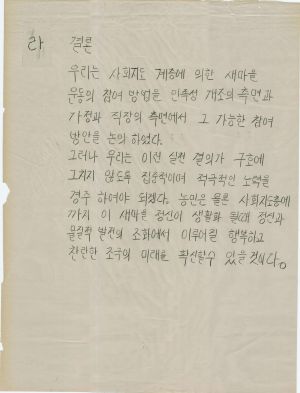 라 결론
우리는 사회지도 계층에 의한 새마을
운동의 참여 방법을 민족성 개조의 측면과
가정과 직장의 측면에서 그 가능한 참여
방안을 논의 하였다.
그러나 우리는 이런 실천 결의가 구호에
그치지 않도록 집중적이며 적극적인 노력을
경주 하여야 되겠다. 농민은 물론 사회지도층에
까지 이 새마을 정신이 생활화 될때 정신과
물질적 발전의 조화에서 이루어질 행복하고
찬란한 조국의 미래를 확신할수 있을것이다。